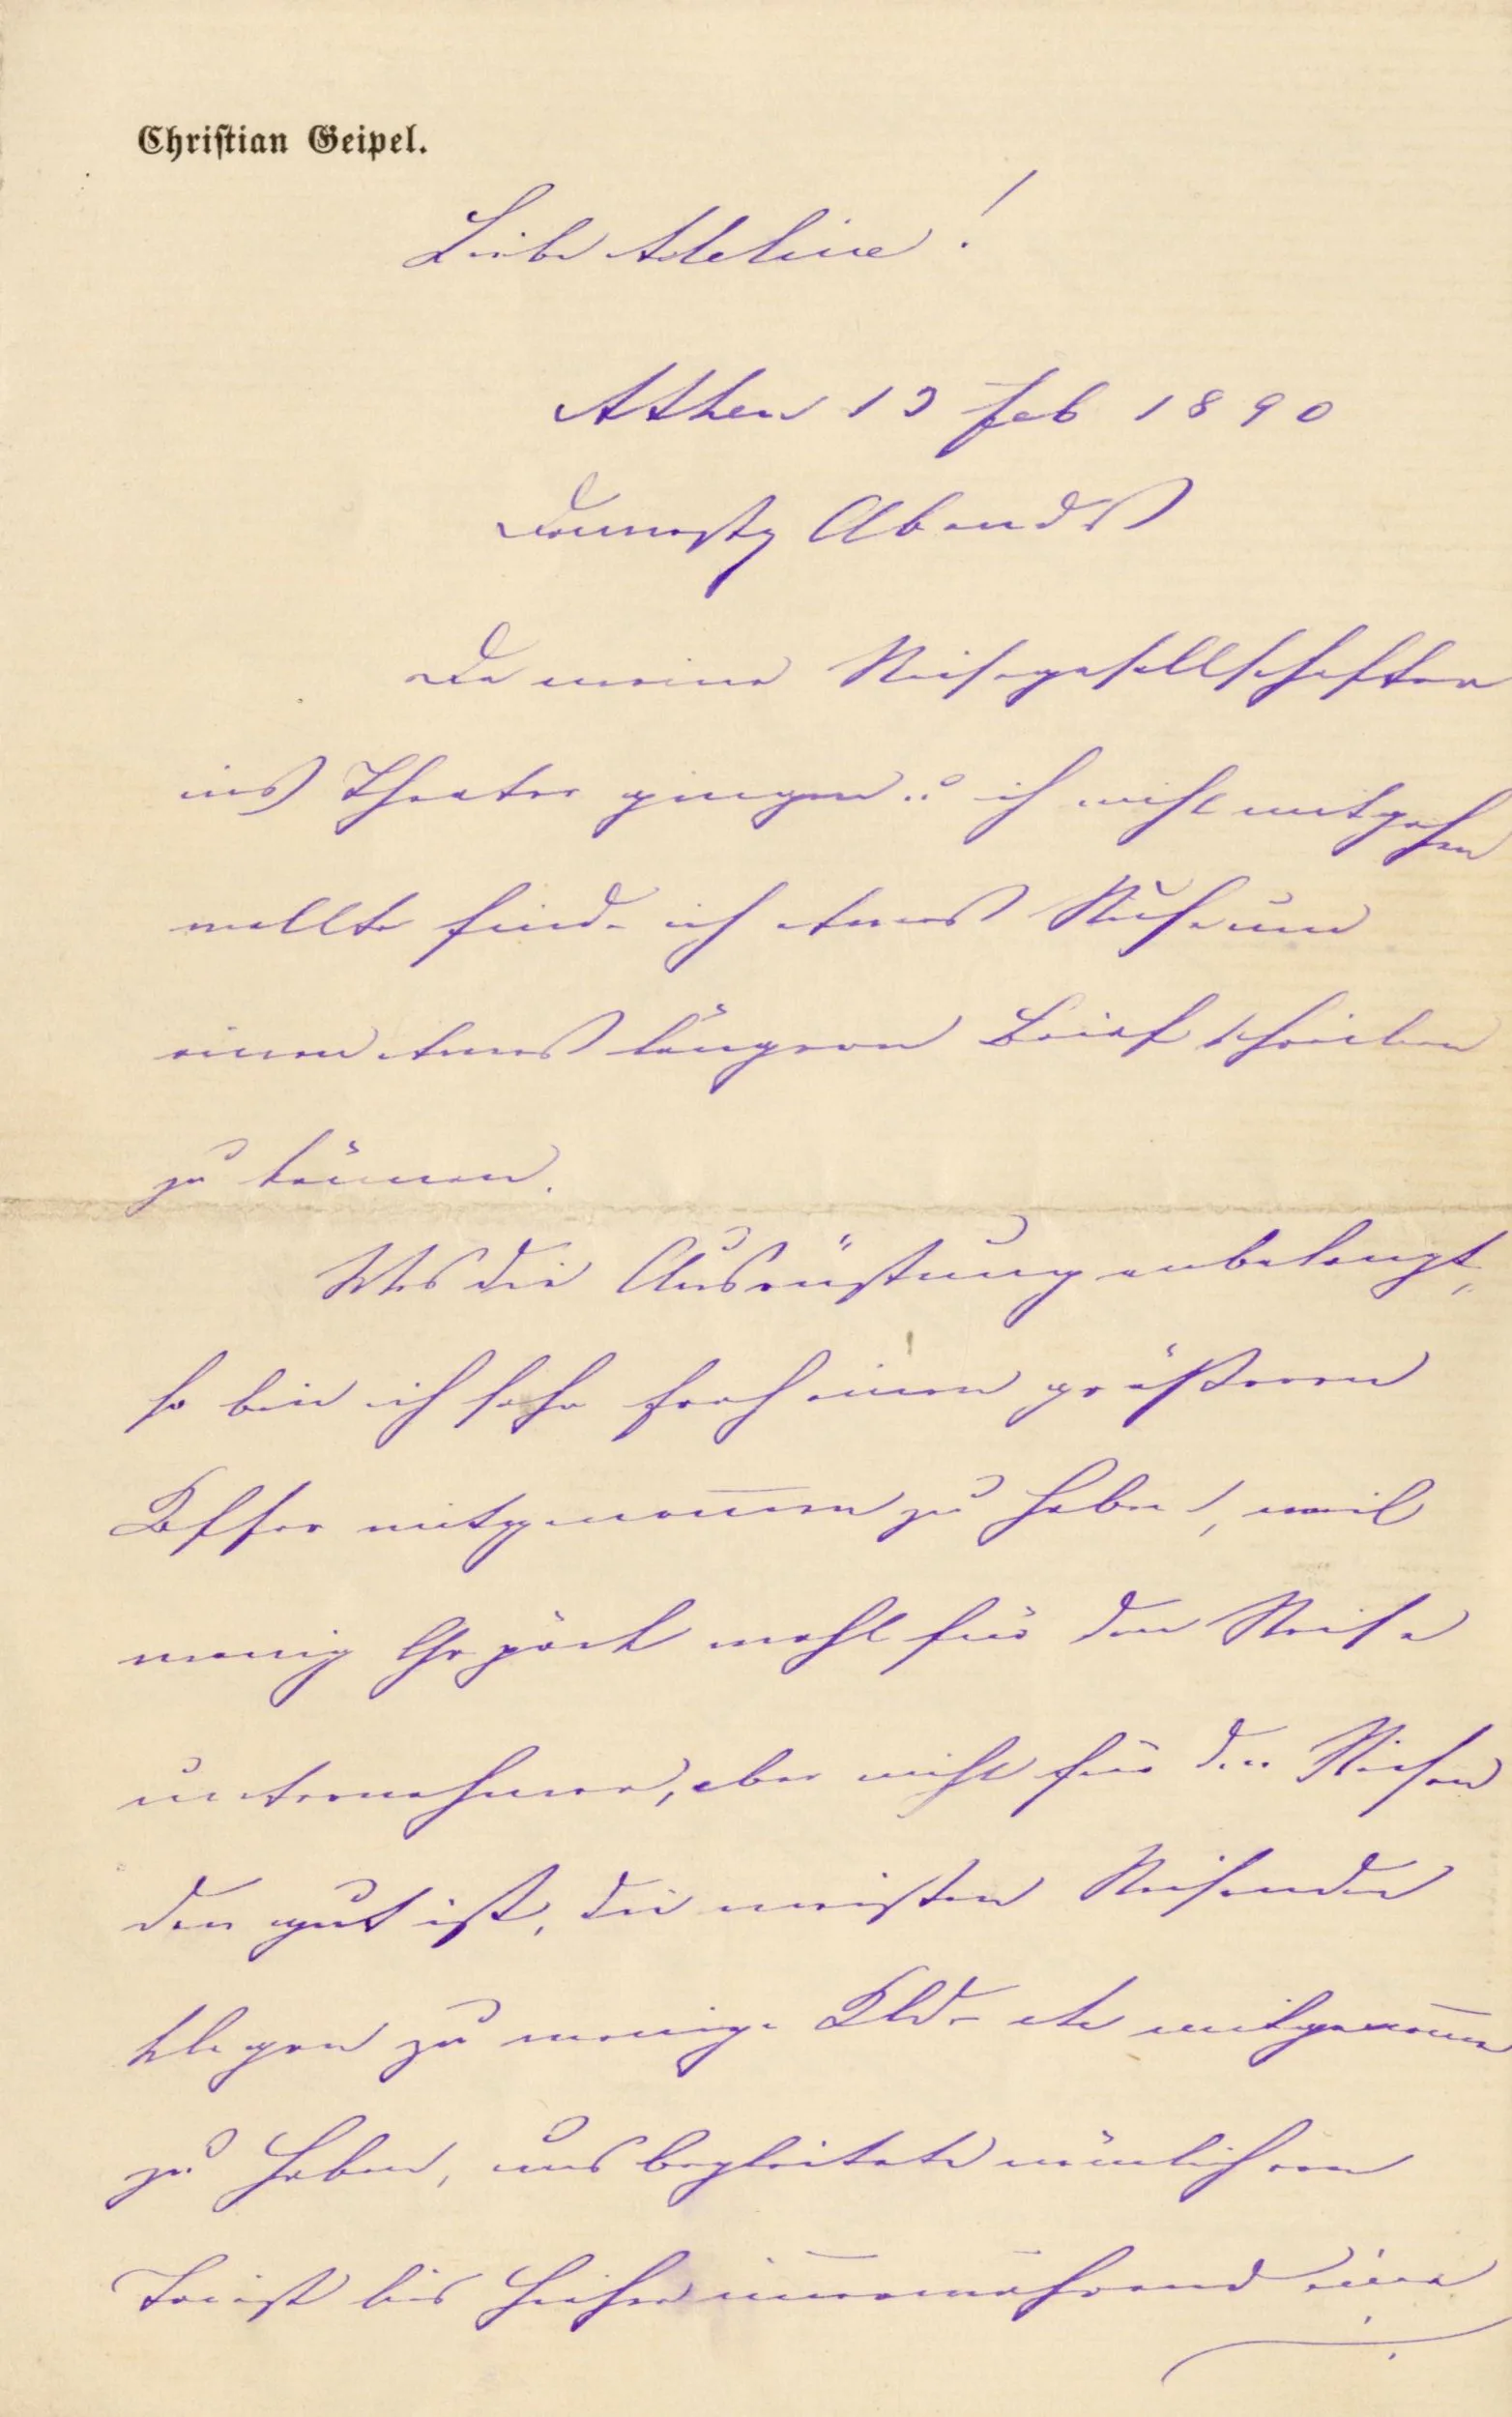 Christian Geipel.
Liebe Adeline!
Athen 13 Feb 1890
Donnerstg Abends
Da meine Reisegesellschafter
ins Theater gingen u ich nicht mitgehen
wollte finde ich etwas Ruhe um
einen etwas längeren Brief schreiben
zu können.
Was die Ausrüstung anbelangt,
so bin ich sehr froh einen größeren
Koffer mitgenom̅en zu haben, weil
wenig Gepäck wohl für den Reise
unternehmer, aber nicht für den Reisen
den gut ist, die meisten Reisenden
klagen zu wenige Kld- etc mitgenom̅en
zu haben, uns begleitete nämlich von
Triest bis hieher im̅erwährend eine